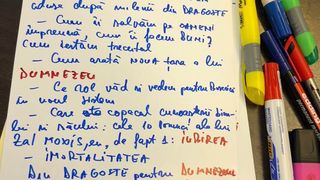 aduse după milenii din DRAGOSTE
- Cum îi salvăm pe OAMENI
împreună, cum îi facem BUNI?
Cum iertăm trecutul
- Cum arată NOUA țara a lui
DUMNEZEU
- Ce rol văd și vedem pentru
în noul sistem
- Care este copacul cunoașterii binelui
și răului: cele 10 porunci ale lui
lui MOXIS, ei, de fapt 1: IUBIREA
- IMORTALITATEA
Din DRAGOSTE pentru DUMNEZEU